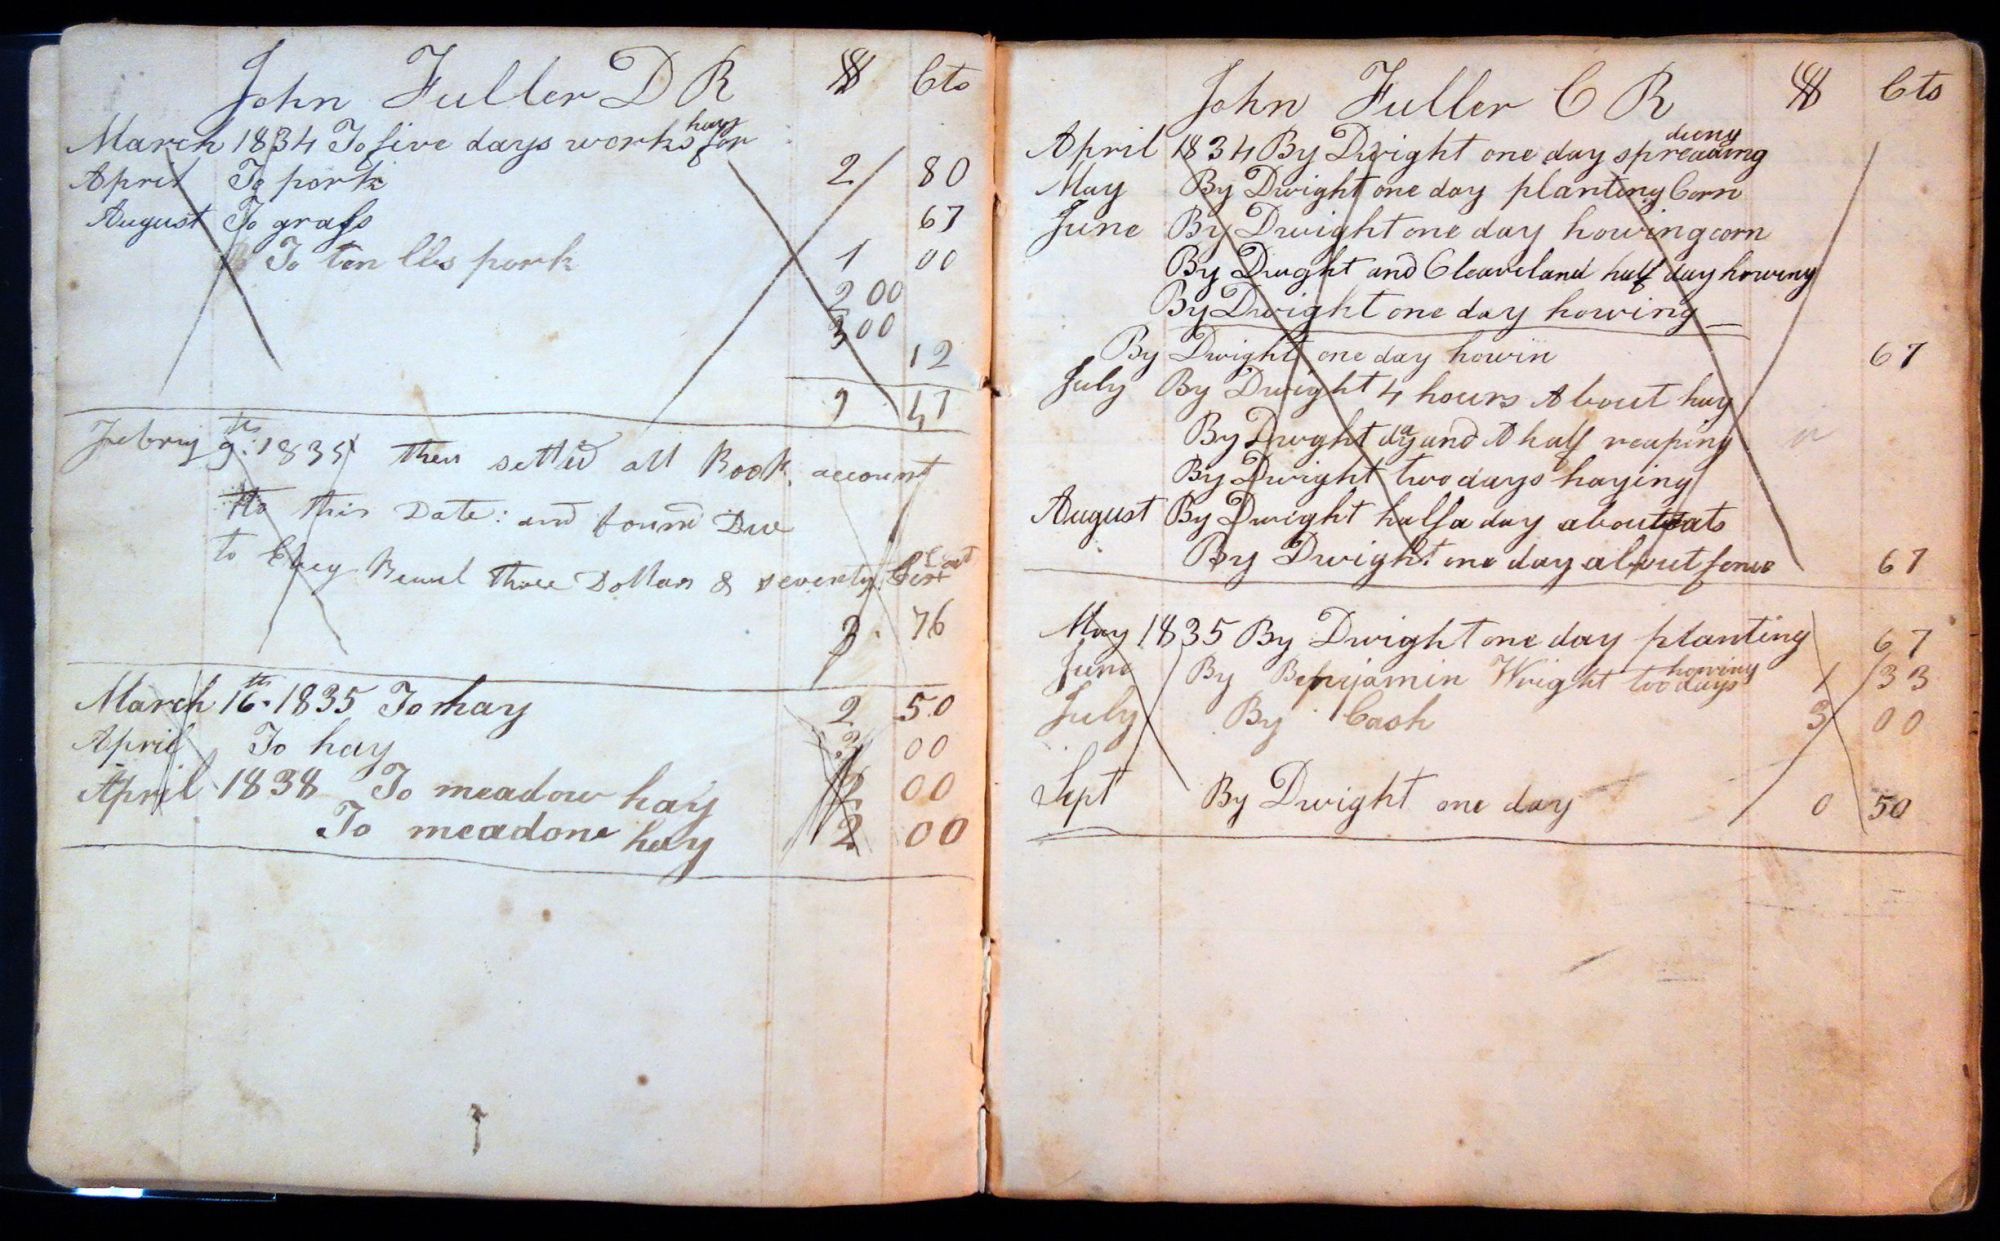 John Fuller D R $ Cts
hay
March 1834 To five days works for
April To pork 2 80
August To grass 67
To ten lbs pork 1 00
2 00
3 00
12
9 47
Febry 9th: 1835 then settled all Book account
to this Date: and found Due
to Chey three Dollars & seventy six cent
3. 76
March 16th 1835 To hay 2 50
April To hay 2 00
April 1838 To meadow hay 2 00
To meadone hay 2 00
John Fuller C R $ Cts
dung
April 1834 By Dwight one day spreading
May By Dwight one day planting Corn
June By Dwight one day howing corn
By Dwight and Cleaveland half day howing
By Dwight one day howing
By Dwight one day howin 67
July By Dwight 4 hours About hay
By Dwght day and A half reaping
By Dwight two days haying
August By Dwight half a day about oats
By Dwight one day about fence 67
May 1835 By Dwight one day planting 67
howing
June By Benjamin Wright two days 1 33
July By Cash 3 00
Sept By Dwight one day 0 50